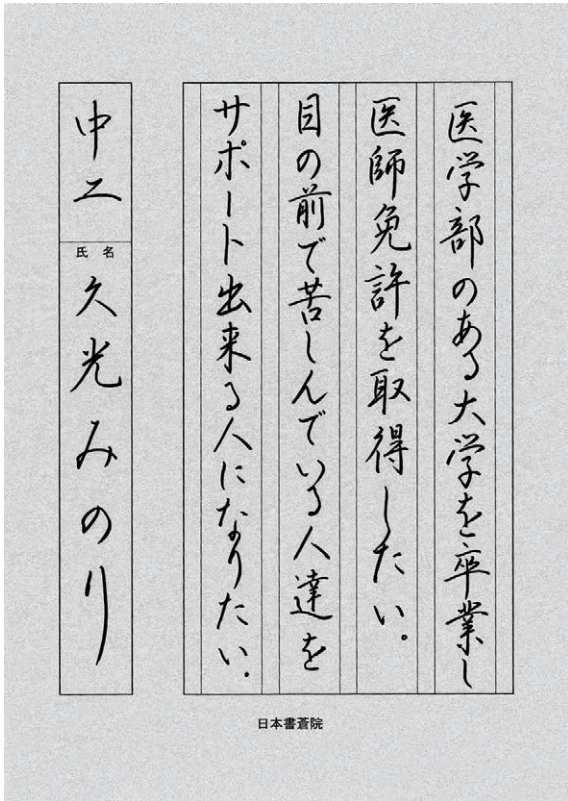 医学部のある大学を卒業し
医師免許を取得したい。
目の前で苦しんでいる人達を
サポート出来る人になりたい。
中二
氏名
久光みのり
日本書蒼院